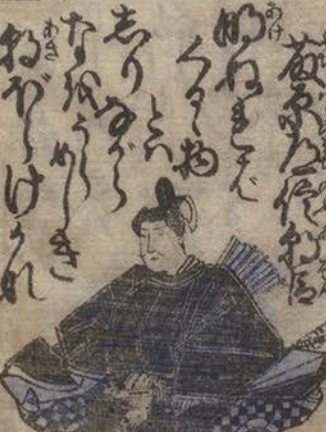 藤原道信朝臣
あけ
明ぬれば
くるゝ物
とは
しりながら
なをうら
めしき
あさ
朝ぼらけかな